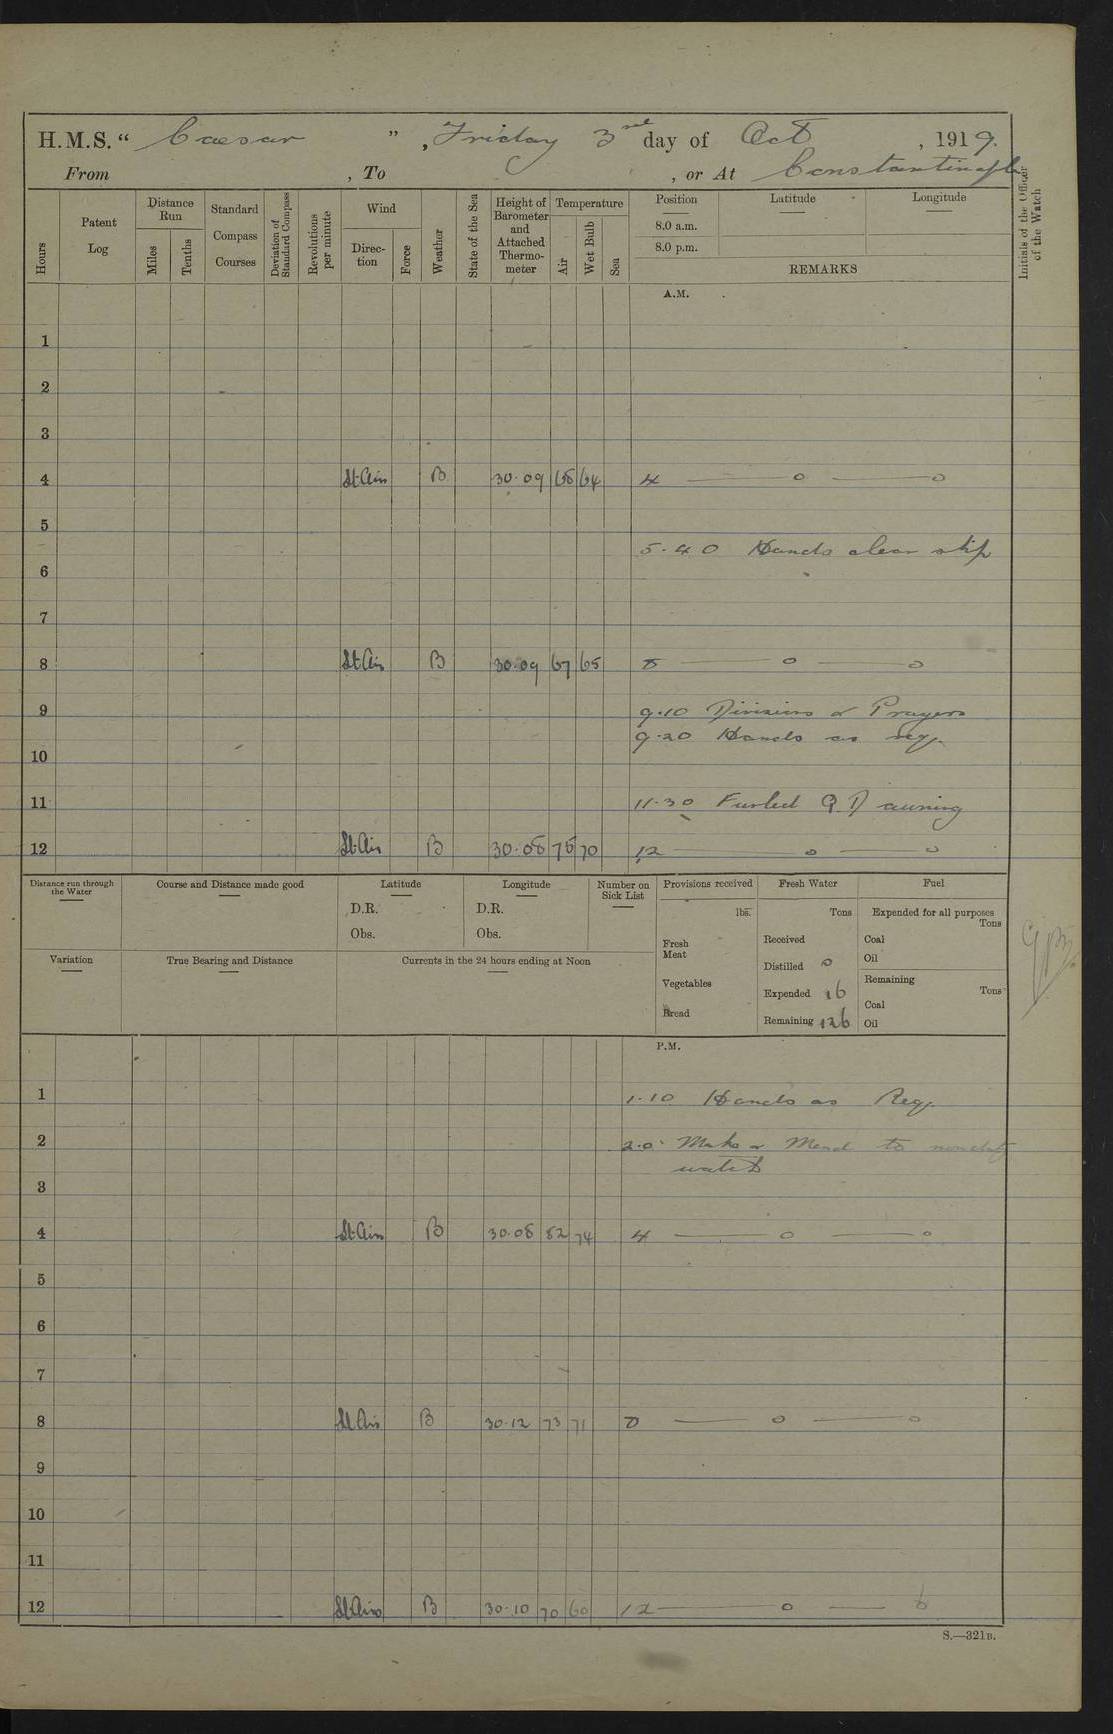 H.M.S. “ Caesar ” , Friday 3rd day of Oct , 1919.
From , To , or At Constantinople
Hours
Patent Log
Distance Run
Miles
Tenths
Standard Compass Courses
Deviation of Standard Compass
Revolutions per minute
Wind
Direc-tion
Force
Weather
State of the Sea
Height of Barometer and Attached Thermo-meter
Temperature
Air
Wet Bulb
Sea
Position Latitude Longitude
8.0 a.m.
8.0 p.m.
REMARKS
Initials of the Officer of the Watch
A.M.
1
2
3
4 Lt. Airs B 30.09 68 64 4 — o — o
5
5.40 Hands clean ship
6
7
8 Lt Airs B 30.09 67 65 8 — o — o
9 9.10 Divisions & Prayers
9.20 Hands as req.
10
11 11.30 Furled Q D awning
12 Lt. Airs B 30.08 78 70 12 — o — o
Distance run through the Water
Course and Distance made good
Latitude
D.R.
Obs.
Longitude
D.R.
Obs.
Number on Sick List
Provisions received
lbs.
Fresh Meat
Vegetables
Bread
Fresh Water
Tons
Received
Distilled o
Expended 16
Remaining 126
Fuel
Expended for all purposes
Tons
Coal
Oil
Remaining
Tons
Coal
Oil
Variation
True Bearing and Distance
Currents in the 24 hours ending at Noon
P.M.
1 1.10 Hands as Req.
2 2.0 Make & Mend to nonduty
watch
3
4 Lt. Airs B 30.08 82 74 4 — o — o
5
6
7
8 Lt Airs B 30.12 73 71 8 — o — o
9
10
11
12 Lt. Airs B 30.10 70 60 12 — o — o
S.—321B.